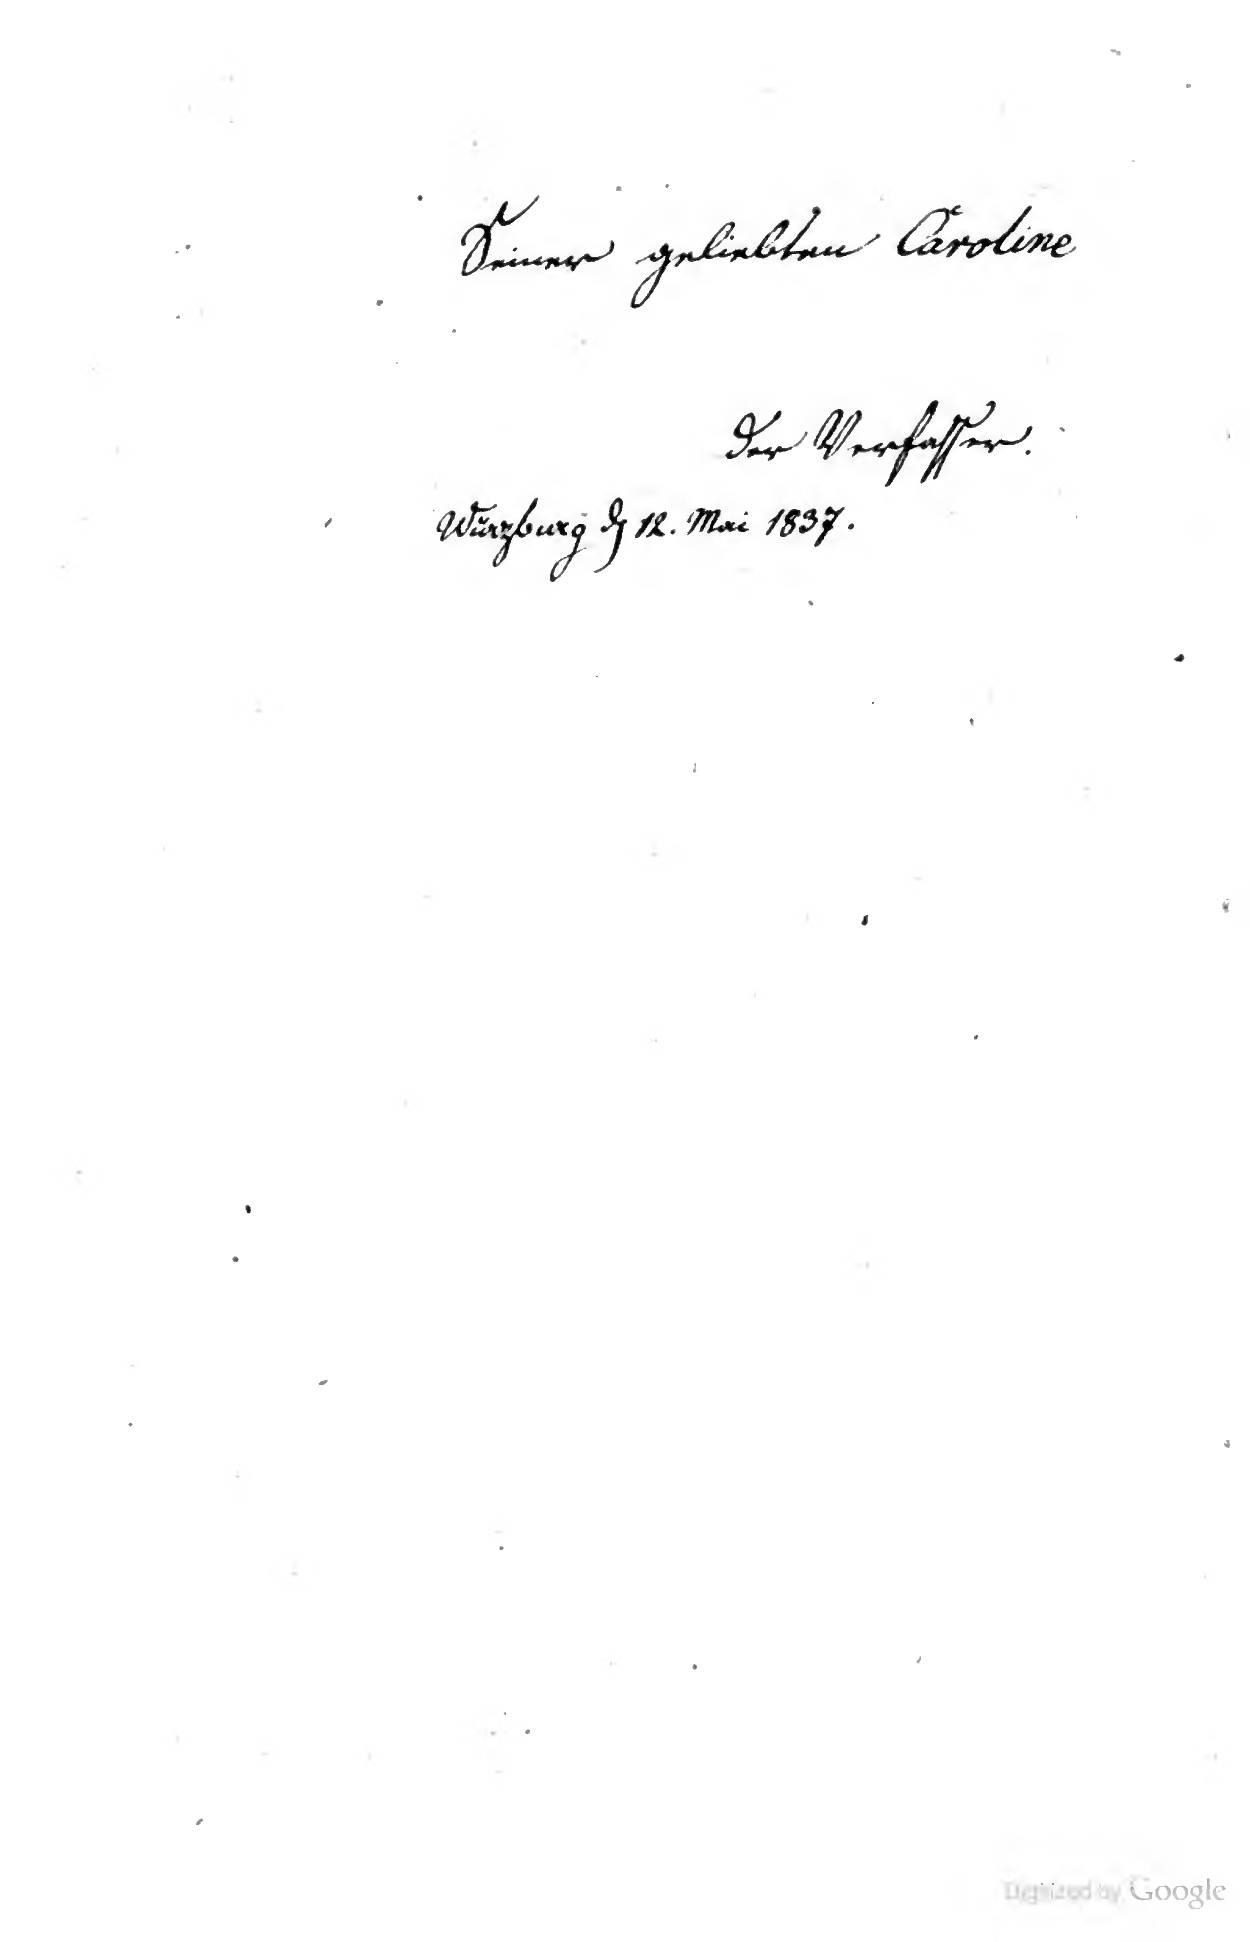 Seiner geliebten Caroline
der Verfasser.
Würzburg d 12. Mai 1837.
Digitized by Google